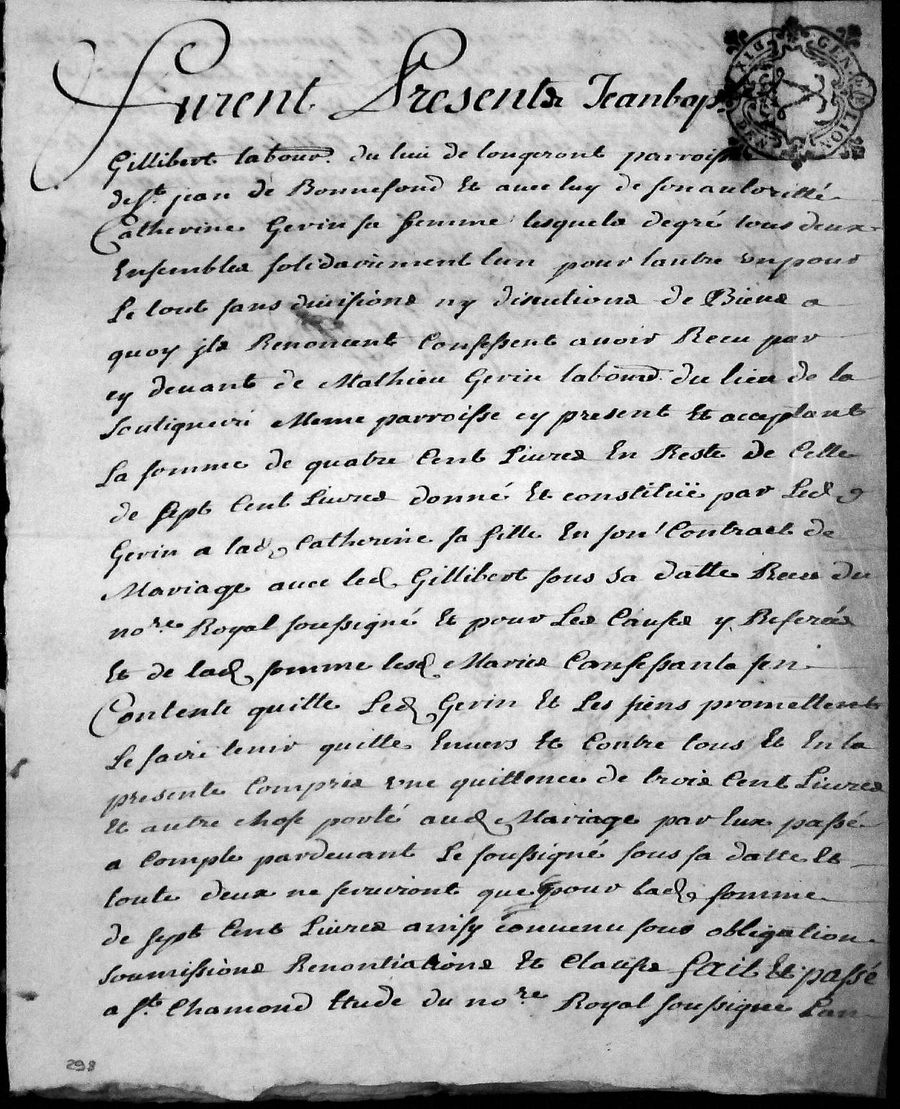 Furent Presents Jeanbap
Gillibert labour. du lieu de longeront parroisse
de St jean de Bonnefond Et avec luy de son autorité
Catherine Gerin sa femme lesquels de gré tous deux
Ensembles solidairement lun pour lautre un pour
Le tout sans divisions ny discutions de Biens a
quoy jls Renoncent Confessent avoir Receu par
cy devant de Mathieu Gerin labourd. du lieu de la
Meme parroisse cy present Et acceptant
La somme de quatre Cent Livres En Reste de Celle
de sept Cent Livres donné Et constitüé par Led
Gerin a lad Catherine sa fille En son Contract de
Mariage avec led Gillibert sous sa datte Receu du
nore Royal soussigné Et pour Les Causes y Referés
Et de lad somme lesd Mariés Confessants sen
Contente quitte Led Gerin Et Les siens promettent
Le faire tenir quitte Envers Et Contre tous Et En la
presente Compris une quittence de trois Cent Livres
Et autre chose porté aud Mariage par lux passé
a Compte pardevant Le soussigné sous sa datte Et
toute deux ne serviront que pour lad somme
de sept Cent Livres ainsy convenu sous obligation
soumissions Renontiations Et Clauses fait Et passé
a St Chamond Etude du nore Royal soussigné Lan
298